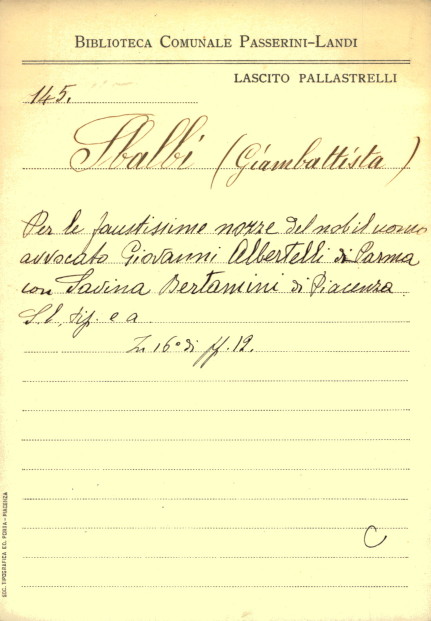 BIBLIOTECA COMUNALE PASSERINI-LANDI
LASCITO PALLASTRELLI
145.
Sbalbi (Giambattista)
Per le faustissime nozze del nobil uomo
avvocato Giovanni Albertelli di Parma
con Savina Bertamini di Piacenza.
S. l., tip. e a
In 16° di ff. 12.
C
SOC. TIPOGRAFICA ED. PORTA - PIACENZA